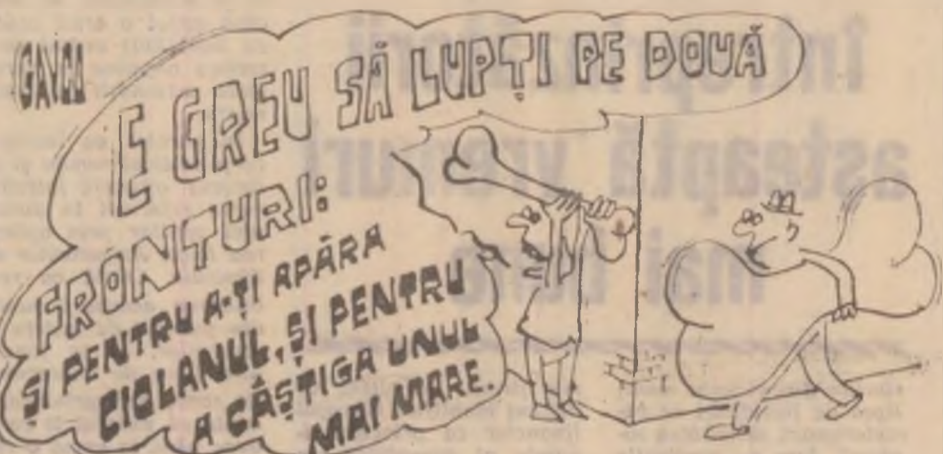 E GREU SĂ LUPȚI PE DOUĂ
FRONTURI:
ȘI PENTRU A-ȚI APĂRA
CIOLANUL, ȘI PENTRU
A CÂȘTIGA UNUL
MAI MARE.